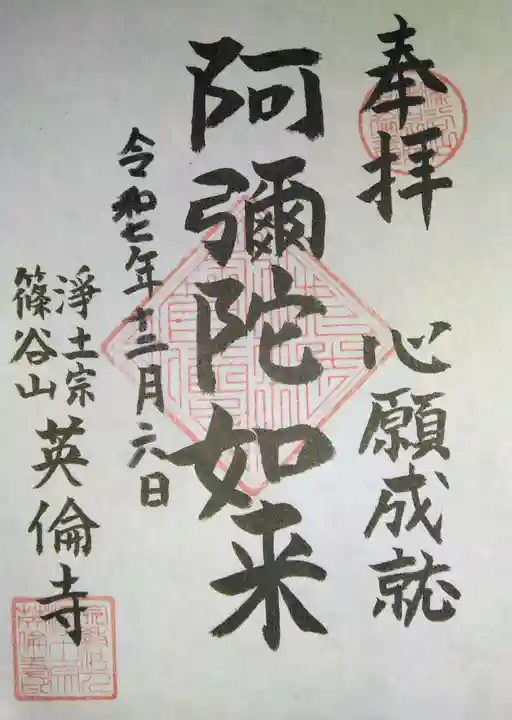 奉拝
心願成就
阿彌陀如来
令和七年十二月六日
淨土宗
篠谷山
英倫寺